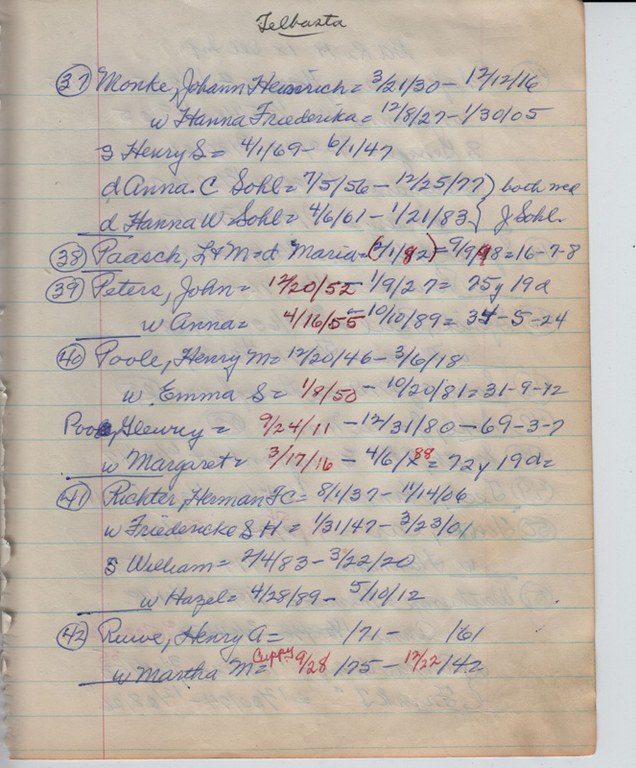 Telbasta
37 Monke, Johann Heinrich = 3/21/30 - 12/12/16
w Hanna Friederika = 12/8/27 - 1/30/05
S Henry S = 4/1/69 - 6/1/47
d Anna. C Sohl = 7/5/56 - 12/25/77 ) both md
d Hanna W Sohl = 4/6/61 - 1/21/83 } J Sohl
38 Paasch, L & M = d Maria = (2/1/82) = 9/9/98 = 16-7-8
39 Peters, John = 12/20/52 1/9/27 = 75y 19d
w Anna = 4/16/55 - 10/10/89 = 34-5-24
40 Poole, Henry M = 12/20/46 - 3/6/18
w Emma S = 1/8/50 - 10/20/81 = 31-9-12
Poole, Henry = 9/24/11 - 12/31/80 - 69-3-7
w Margaret = 3/17/16 - 4/6/88 = 72y 19d =
41 Richter, Herman F C = 8/1/37 - 11/14/06
w Friedericke S H = 1/31/47 - 3/23/01
S William = 2/4/83 - 3/22/20
w Hazel = 4/28/89 - 5/10/12
42 Ruwe, Henry A = /71 - /61
w Martha M = Cuppy 9/28/75 - 12/22/42